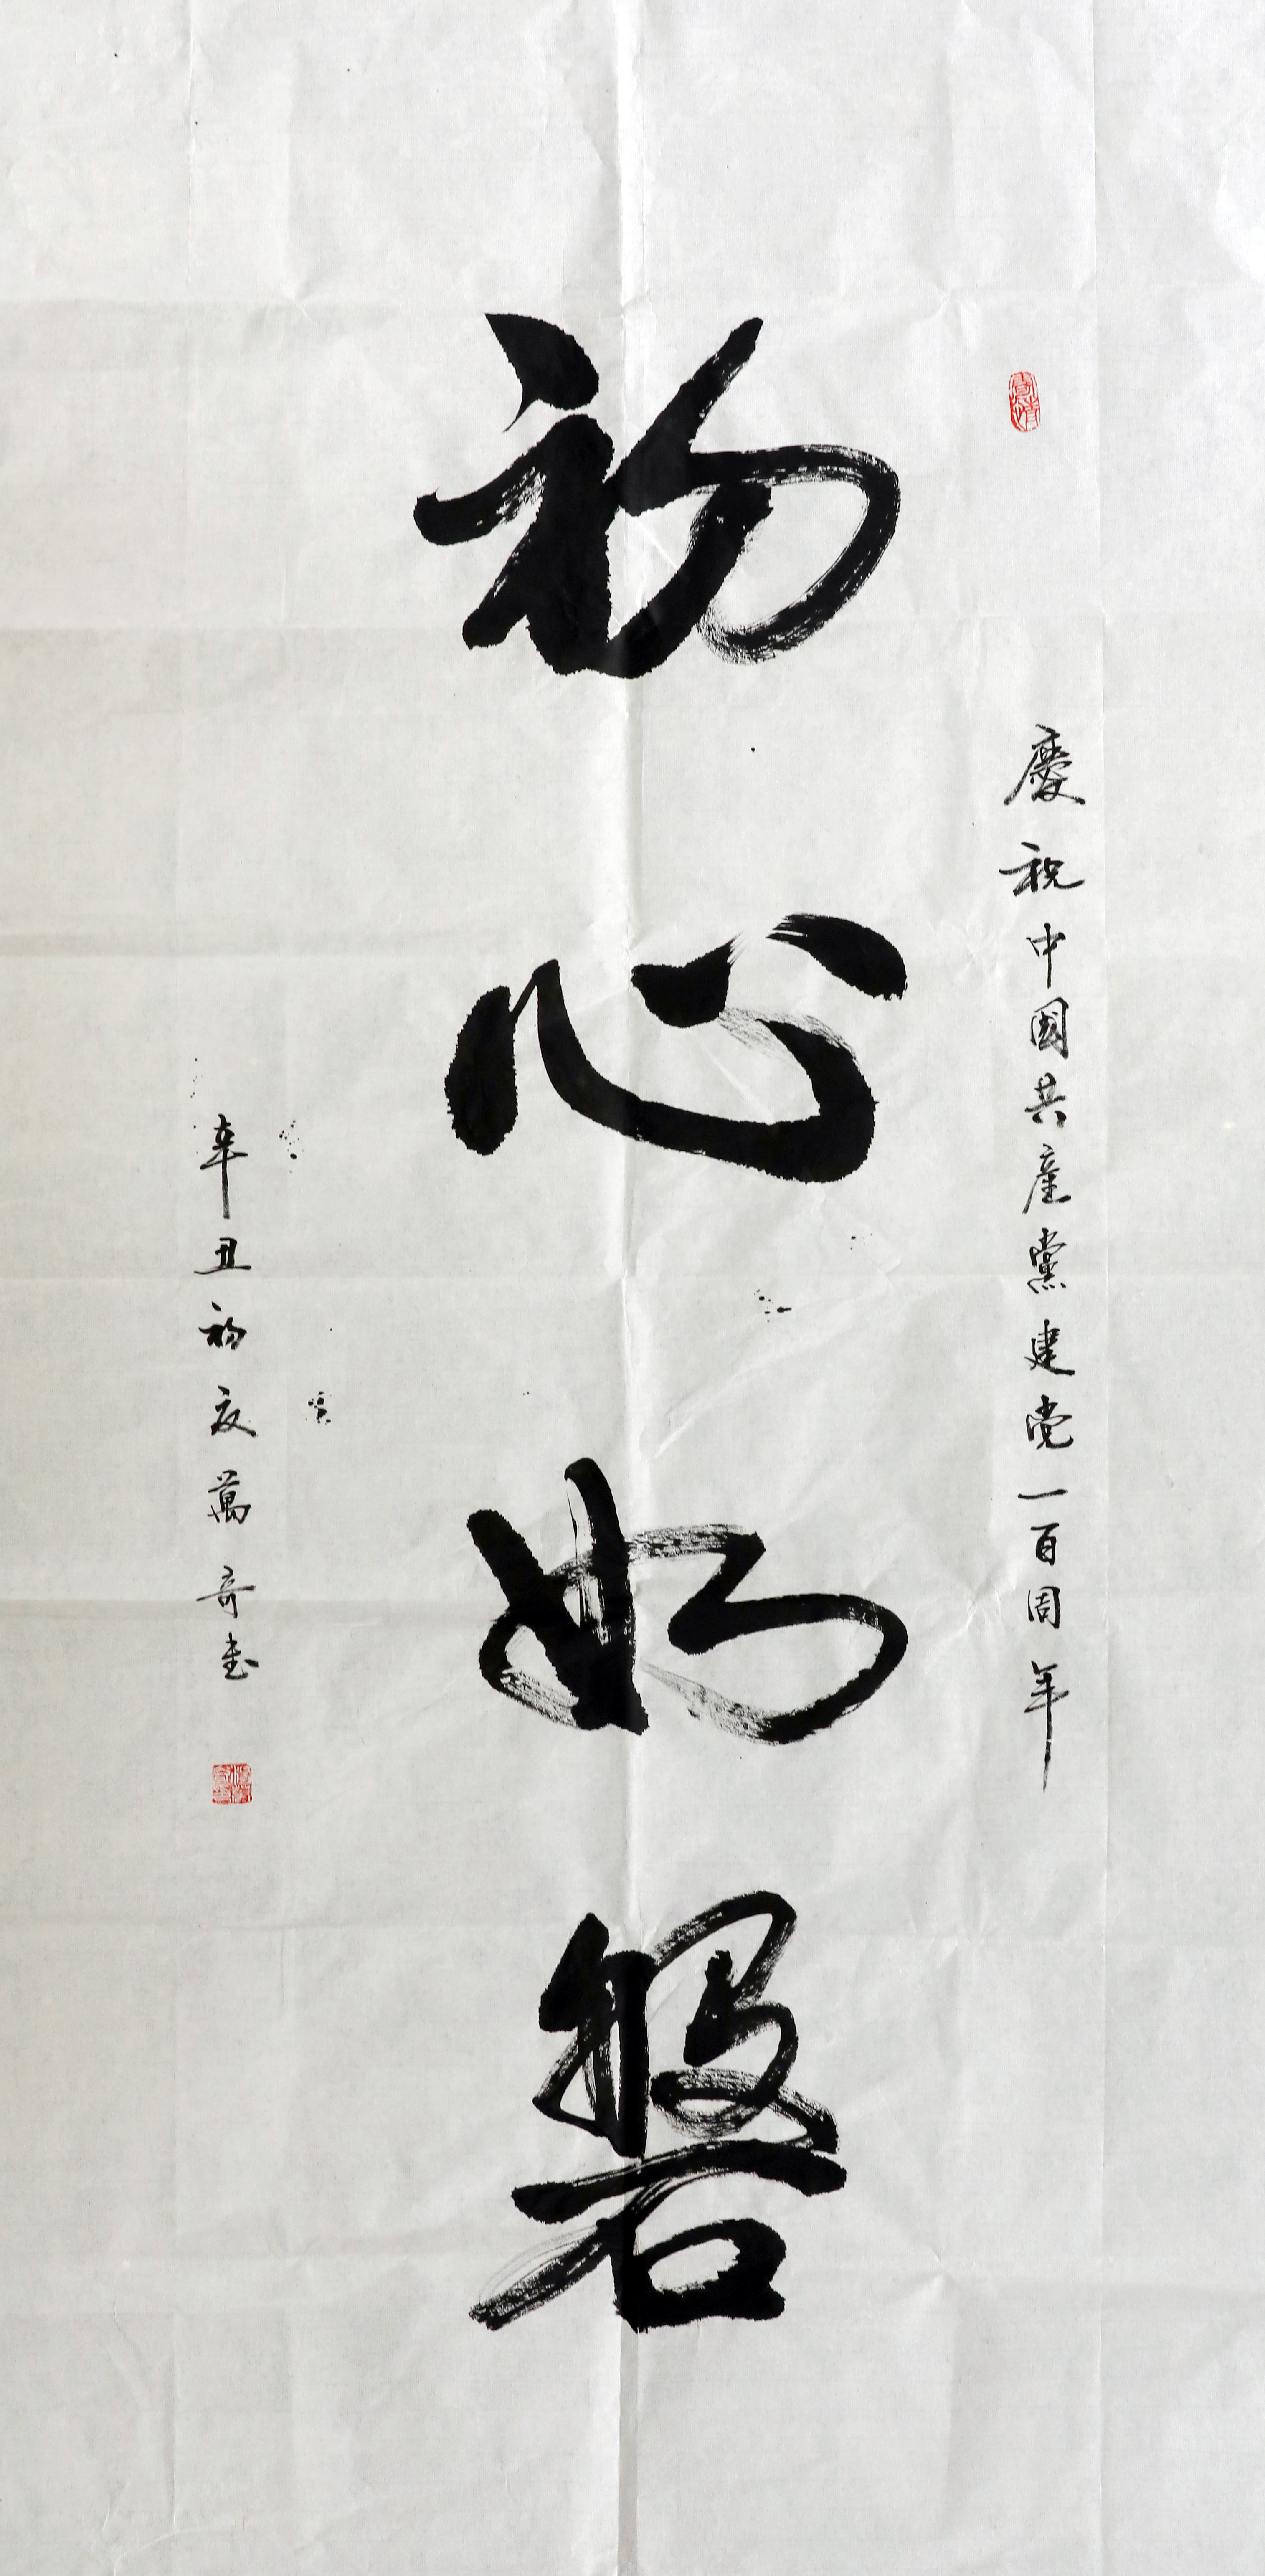 慶祝中國共產黨建党一百周年
初心如磐
辛丑初夏萬奇書